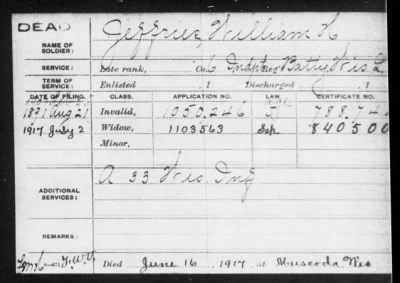 DEAD
Jeffries, William H
NAME OF SOLDIER:
SERVICE: Late rank, Co. 6 Indpt Batty, Wis L.
TERM OF SERVICE: Enlisted , 1 Discharged , 1
DATE OF FILING. CLASS. APPLICATION NO. LAW. CERTIFICATE NO.
1891 Aug 21 Invalid, 1050.246
1917. July 2 Widow, 1103563 840500
Minor,
A 33 Wis. Inf
ADDITIONAL SERVICES:
REMARKS:
Died June 16, 1917, at Muscoda, Wis